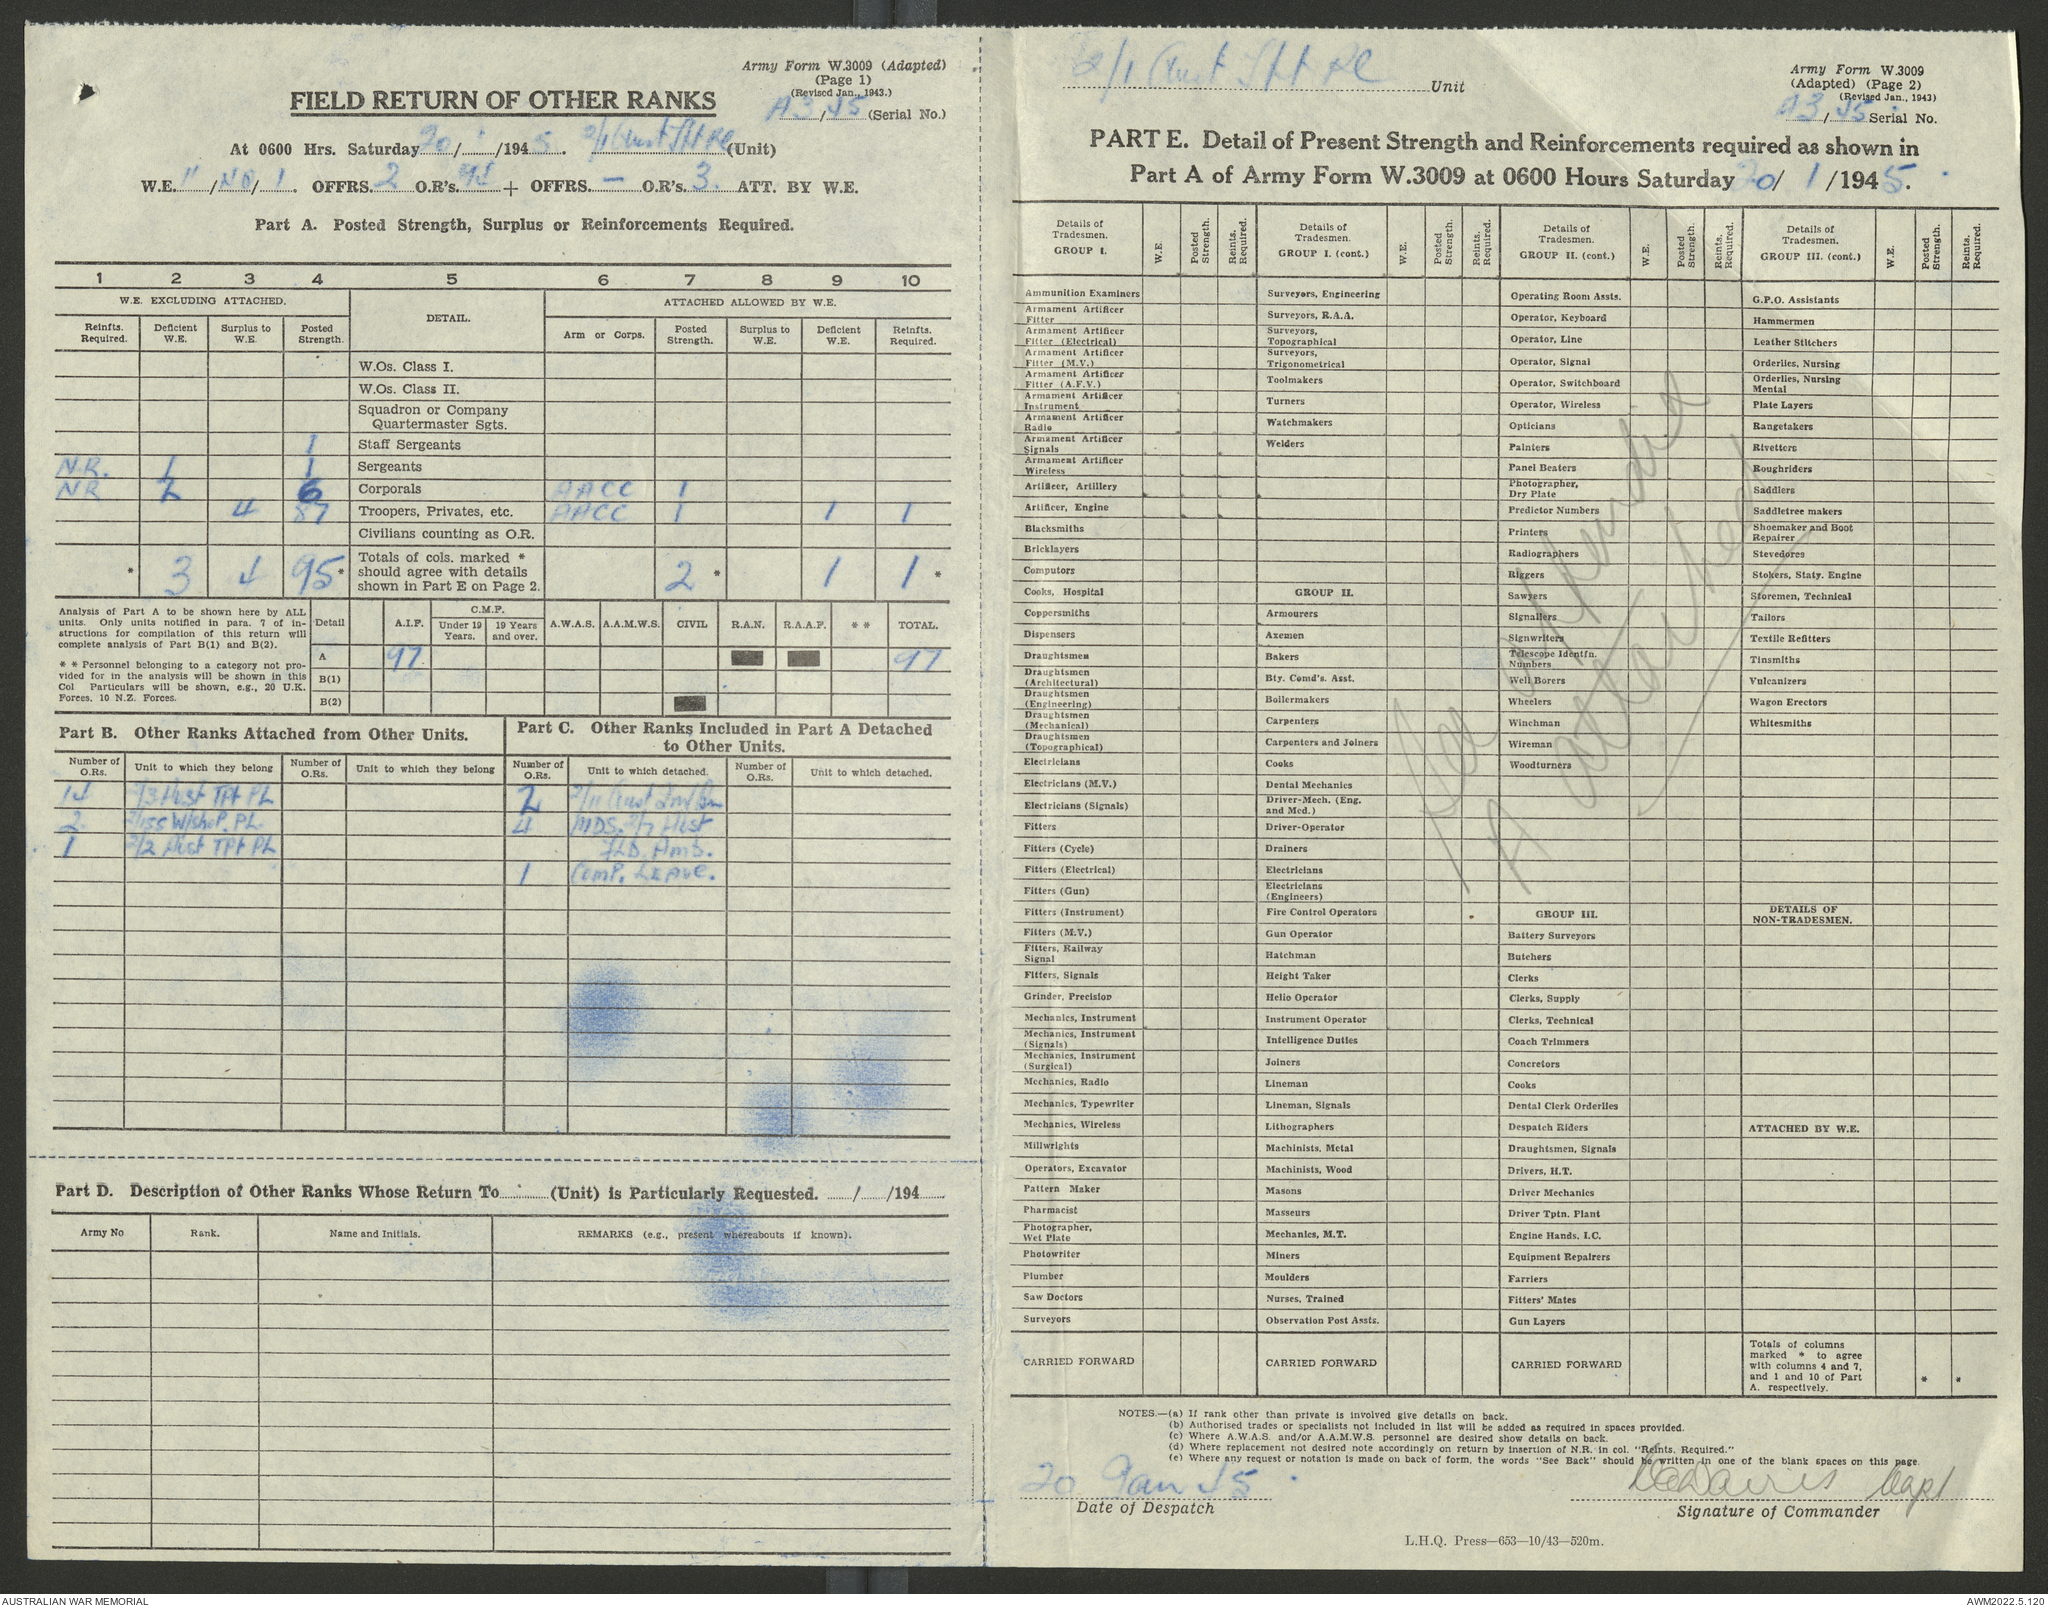 Army Form W.3009 (Adapted)
(Page 1)
(Revised Jan., 1943.)
FIELD RETURN OF OTHER RANKS
A3/45 (Serial No.)
At 0600 Hrs. Saturday 20/1/1945. 2/1 Aust Tpt Pl (Unit)
W.E. II/ND/1. OFFRS. 2 O.R's. 94 + OFFRS. — O.R's. 3. ATT. BY W.E.
Part A. Posted Strength, Surplus or Reinforcements Required.
1 2 3 4 5 6 7 8 9 10
W.E. EXCLUDING ATTACHED. DETAIL. ATTACHED ALLOWED BY W.E.
Reinfts. Required. Deficient W.E. Surplus to W.E. Posted Strength. Arm or Corps. Posted Strength. Surplus to W.E. Deficient W.E. Reinfts. Required.
W.Os. Class I.
W.Os. Class II.
Squadron or Company Quartermaster Sgts.
1 Staff Sergeants
N.R. 1 1 Sergeants
NR 2 6 Corporals AACC 1
4 87 Troopers, Privates, etc. AACC 1 1 1
Civilians counting as O.R.
* 3 4 95* Totals of cols. marked * should agree with details shown in Part E on Page 2. 2* 1 1*
Analysis of Part A to be shown here by ALL units. Only units notified in para. 7 of instructions for compilation of this return will complete analysis of Part B(1) and B(2).
* * Personnel belonging to a category not provided for in the analysis will be shown in this Col Particulars will be shown, e.g., 20 U.K. Forces, 10 N.Z. Forces.
Detail A.I.F. C.M.F. Under 19 Years. 19 Years and over. A.W.A.S. A.A.M.W.S. CIVIL R.A.N. R.A.A.F. * * TOTAL.
A 97 97
B(1)
B(2)
Part B. Other Ranks Attached from Other Units.
Number of O.Rs. Unit to which they belong Number of O.Rs. Unit to which they belong
14 2/3 Aust Tpt Pl
2 2/155 W/shop. PL.
1 2/2 Aust Tpt PL
Part C. Other Ranks Included in Part A Detached to Other Units.
Number of O.Rs. Unit to which detached. Number of O.Rs. Unit to which detached.
2 2/11 Aust Inf Bn
4 MDS. 2/7 Aust
FLD. Amb.
1 Comp. LEAVE.
Part D. Description of Other Ranks Whose Return To (Unit) is Particularly Requested. / /194
Army No Rank. Name and Initials. REMARKS (e.g., present whereabouts if known).
2/1 Aust Tpt Pl Unit
Army Form W.3009
(Adapted) (Page 2)
(Revised Jan., 1943)
A3/45 Serial No.
PART E. Detail of Present Strength and Reinforcements required as shown in
Part A of Army Form W.3009 at 0600 Hours Saturday 20/1/1945.
Details of Tradesmen. GROUP I. W.E. Posted Strength. Reints. Required.
Ammunition Examiners
Armament Artificer Fitter
Armament Artificer Fitter (Electrical)
Armament Artificer Fitter (M.V.)
Armament Artificer Fitter (A.F.V.)
Armament Artificer Instrument
Armament Artificer Radio
Armament Artificer Signals
Armament Artificer Wireless
Artificer, Artillery
Artificer, Engine
Blacksmiths
Bricklayers
Computors
Cooks, Hospital
Coppersmiths
Dispensers
Draughtsmen
Draughtsmen (Architectural)
Draughtsmen (Engineering)
Draughtsmen (Mechanical)
Draughtsmen (Topographical)
Electricians
Electricians (M.V.)
Electricians (Signals)
Fitters
Fitters (Cycle)
Fitters (Electrical)
Fitters (Gun)
Fitters (Instrument)
Fitters (M.V.)
Fitters, Railway Signal
Fitters, Signals
Grinder, Precision
Mechanics, Instrument
Mechanics, Instrument (Signals)
Mechanics, Instrument (Surgical)
Mechanics, Radio
Mechanics, Typewriter
Mechanics, Wireless
Millwrights
Operators, Excavator
Pattern Maker
Pharmacist
Photographer, Wet Plate
Photowriter
Plumber
Saw Doctors
Surveyors
CARRIED FORWARD
Details of Tradesmen. GROUP I. (cont.) W.E. Posted Strength. Reints. Required.
Surveyors, Engineering
Surveyors, R.A.A.
Surveyors, Topographical
Surveyors, Trigonometrical
Toolmakers
Turners
Watchmakers
Welders
GROUP II.
Armourers
Axemen
Bakers
Bty. Comd's. Asst.
Boilermakers
Carpenters
Carpenters and Joiners
Cooks
Dental Mechanics
Driver-Mech. (Eng. and Med.)
Driver-Operator
Drainers
Electricians
Electricians (Engineers)
Fire Control Operators
Gun Operator
Hatchman
Height Taker
Helio Operator
Instrument Operator
Intelligence Duties
Joiners
Lineman
Lineman, Signals
Lithographers
Machinists, Metal
Machinists, Wood
Masons
Masseurs
Mechanics, M.T.
Miners
Moulders
Nurses, Trained
Observation Post Assts.
CARRIED FORWARD
Details of Tradesmen. GROUP II. (cont.) W.E. Posted Strength. Reints. Required.
Operating Room Assts.
Operator, Keyboard
Operator, Line
Operator, Signal
Operator, Switchboard
Operator, Wireless
Opticians
Painters
Panel Beaters
Photographer, Dry Plate
Predictor Numbers
Printers
Radiographers
Riggers
Sawyers
Signallers
Signwriters
Telescope Identfn. Numbers
Well Borers
Wheelers
Winchman
Wireman
Woodturners
GROUP III.
Battery Surveyors
Butchers
Clerks
Clerks, Supply
Clerks, Technical
Coach Trimmers
Concretors
Cooks
Dental Clerk Orderlies
Despatch Riders
Draughtsmen, Signals
Drivers, H.T.
Driver Mechanics
Driver Tptn. Plant
Engine Hands, I.C.
Equipment Repairers
Farriers
Fitters' Mates
Gun Layers
CARRIED FORWARD
Details of Tradesmen. GROUP III. (cont.) W.E. Posted Strength. Reints. Required.
G.P.O. Assistants
Hammermen
Leather Stitchers
Orderlies, Nursing
Orderlies, Nursing Mental
Plate Layers
Rangetakers
Rivetters
Roughriders
Saddlers
Saddletree makers
Shoemaker and Boot Repairer
Stevedores
Stokers, Staty. Engine
Storemen, Technical
Tailors
Textile Refitters
Tinsmiths
Vulcanizers
Wagon Erectors
Whitesmiths
DETAILS OF NON-TRADESMEN.
ATTACHED BY W.E.
Totals of columns marked * to agree with columns 4 and 7, and 1 and 10 of Part A. respectively. * *
See Appendix
A attached
NOTES.—(a) If rank other than private is involved give details on back.
(b) Authorised trades or specialists not included in list will be added as required in spaces provided.
(c) Where A.W.A.S. and/or A.A.M.W.S. personnel are desired show details on back.
(d) Where replacement not desired note accordingly on return by insertion of N.R. in col. "Reints. Required."
(e) Where any request or notation is made on back of form, the words "See Back" should be written in one of the blank spaces on this page.
20 Jan 45
Date of Despatch
Davies Capt
Signature of Commander
L.H.Q. Press—653—10/43—520m.
AUSTRALIAN WAR MEMORIAL
AWM2022.5.120